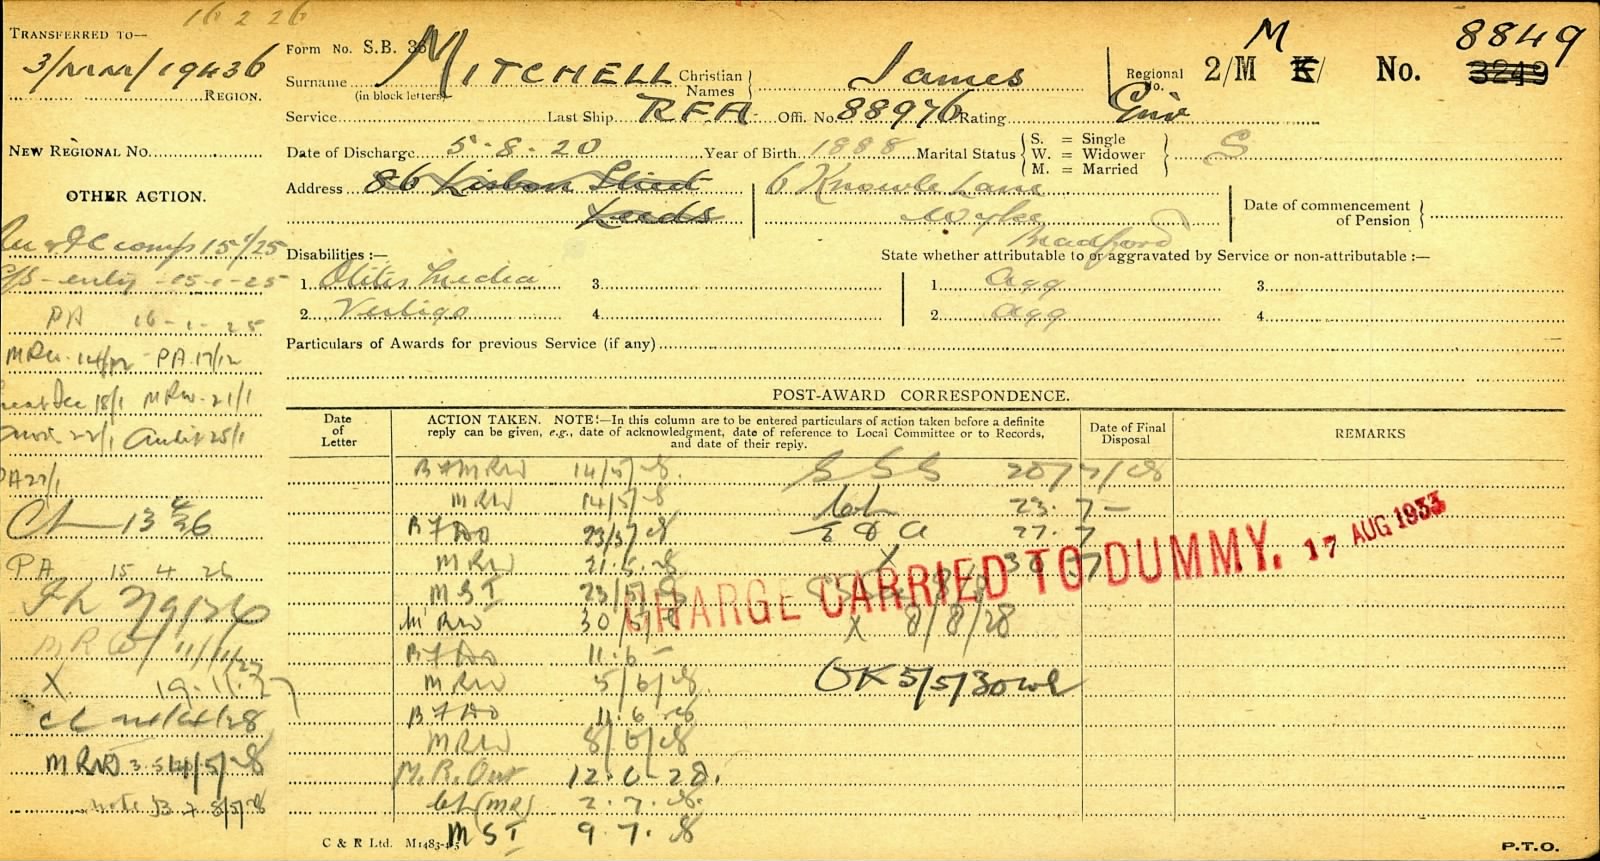 16 2 26
TRANSFERRED TO—
3/MM/19436
REGION.
NEW REGIONAL No.
OTHER ACTION.
comp 15/1/25
entry 15-1-25
PA 16-1-25
MRW 14/12 PA 17/12
18/1 MRW 21/1
22/1 25/1
PA 27/1
13/4/26
PA 15 4 26
MRW 11/11/27
X 19.11.27
CC 24/4/28
MRW 3.5 14/5/28
note B 7 8/5/28
Form No. S.B. 36
Surname MITCHELL Christian Names James
(in block letters)
Regional No. 2/M K/ M No. 3249 8849
Service Last Ship RFA Offi. No. 88976 Rating Gnr
Date of Discharge 5.8.20 Year of Birth 1888 Marital Status { S. = Single W. = Widower M. = Married } S
Address 86 Lisbon Street 6 Knowle Lane
Leeds Wyke
Bradford
Date of commencement of Pension
Disabilities :— State whether attributable to or aggravated by Service or non-attributable :—
1 Otitis Media 3 1 agg 3
2 Vertigo 4 2 agg 4
Particulars of Awards for previous Service (if any)
POST-AWARD CORRESPONDENCE.
Date of Letter
ACTION TAKEN. NOTE:—In this column are to be entered particulars of action taken before a definite reply can be given, e.g., date of acknowledgment, date of reference to Local Committee or to Records, and date of their reply.
Date of Final Disposal
REMARKS
B7 MRW 14/5/28. 20/7/28
MRW 14/5/28 23.7—
B7 DO 23/5/28 27.7
MRW 21.5.28 X 30 7
MSI 23/5/28
MRW 30/5/28 X 8/8/28
B7 DO 11.6—
MRW 5/6/28. OK 5/5/30
B7 DO 11.6.28
MRW 8/6/28
M.R. Out 12.6.28.
(MR) 2.7.28.
MSI 9.7.28
CHARGE CARRIED TO DUMMY. 17 AUG 1933
C & R Ltd. M1483-4/5
P.T.O.